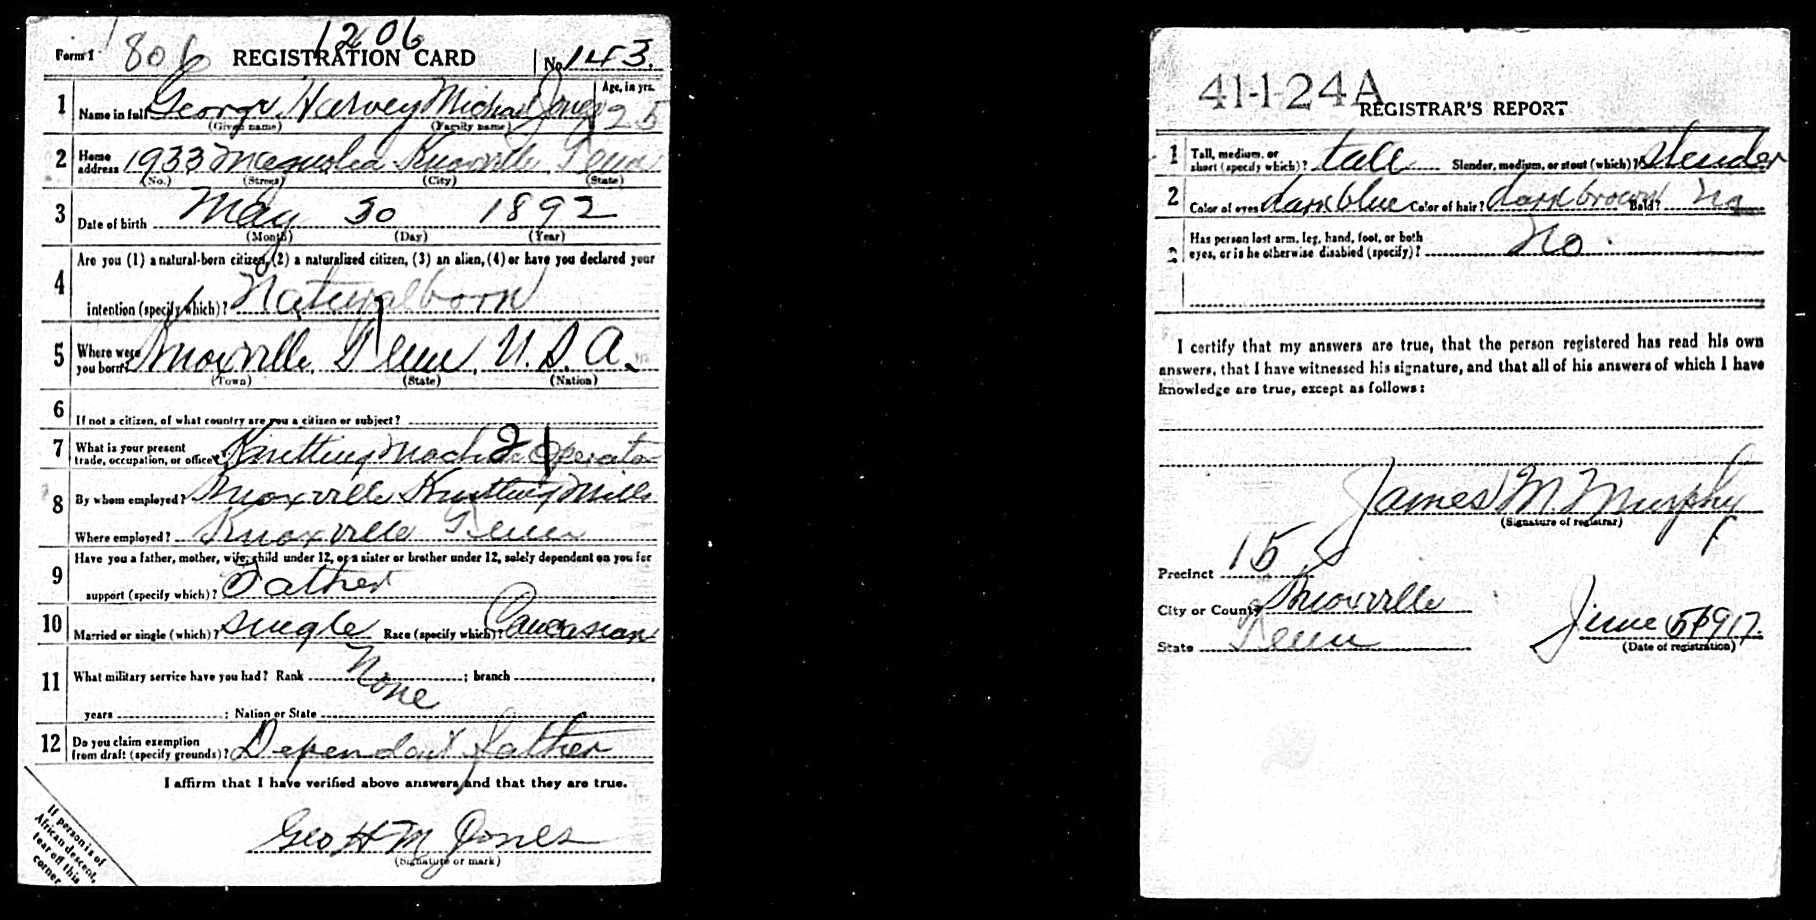 1206
Form 1 806 REGISTRATION CARD No. 143.
1 Name in full George Harvey Michael Jones Age, in yrs. 25
(Given name) (Family name)
2 Home address 1933 Magnolia Knoxville Tenn
(No.) (Street) (City) (State)
3 Date of birth May 30 1892
(Month) (Day) (Year)
4 Are you (1) a natural-born citizen, (2) a naturalized citizen, (3) an alien, (4) or have you declared your
intention (specify which)? Natural born
5 Where were you born? Knoxville Tenn. U.S.A.
(Town) (State) (Nation)
6 If not a citizen, of what country are you a citizen or subject?
7 What is your present trade, occupation, or office? Knitting Machine Operator 21
8 By whom employed? Knoxville Knitting Mills
Where employed? Knoxville Tenn
9 Have you a father, mother, wife, child under 12, or a sister or brother under 12, solely dependent on you for
support (specify which)? Father
10 Married or single (which)? Single Race (specify which)? Caucasian
11 What military service have you had? Rank None ; branch ,
years ; Nation or State
12 Do you claim exemption from draft (specify grounds)? Dependant father
I affirm that I have verified above answers and that they are true.
Geo H M Jones
(Signature or mark)
If person is of
African descent,
tear off this
corner
41-1-24A
REGISTRAR'S REPORT
1 Tall, medium, or short (specify which)? tall Slender, medium, or stout (which)? slender
2 Color of eyes dark blue Color of hair? dark brown Bald? No
3 Has person lost arm, leg, hand, foot, or both
eyes, or is he otherwise disabled (specify)? No.
I certify that my answers are true, that the person registered has read his own
answers, that I have witnessed his signature, and that all of his answers of which I have
knowledge are true, except as follows:
James M. Murphy
(Signature of registrar)
Precinct 15
City or County Knoxville
State Tenn June 5 1917.
(Date of registration)